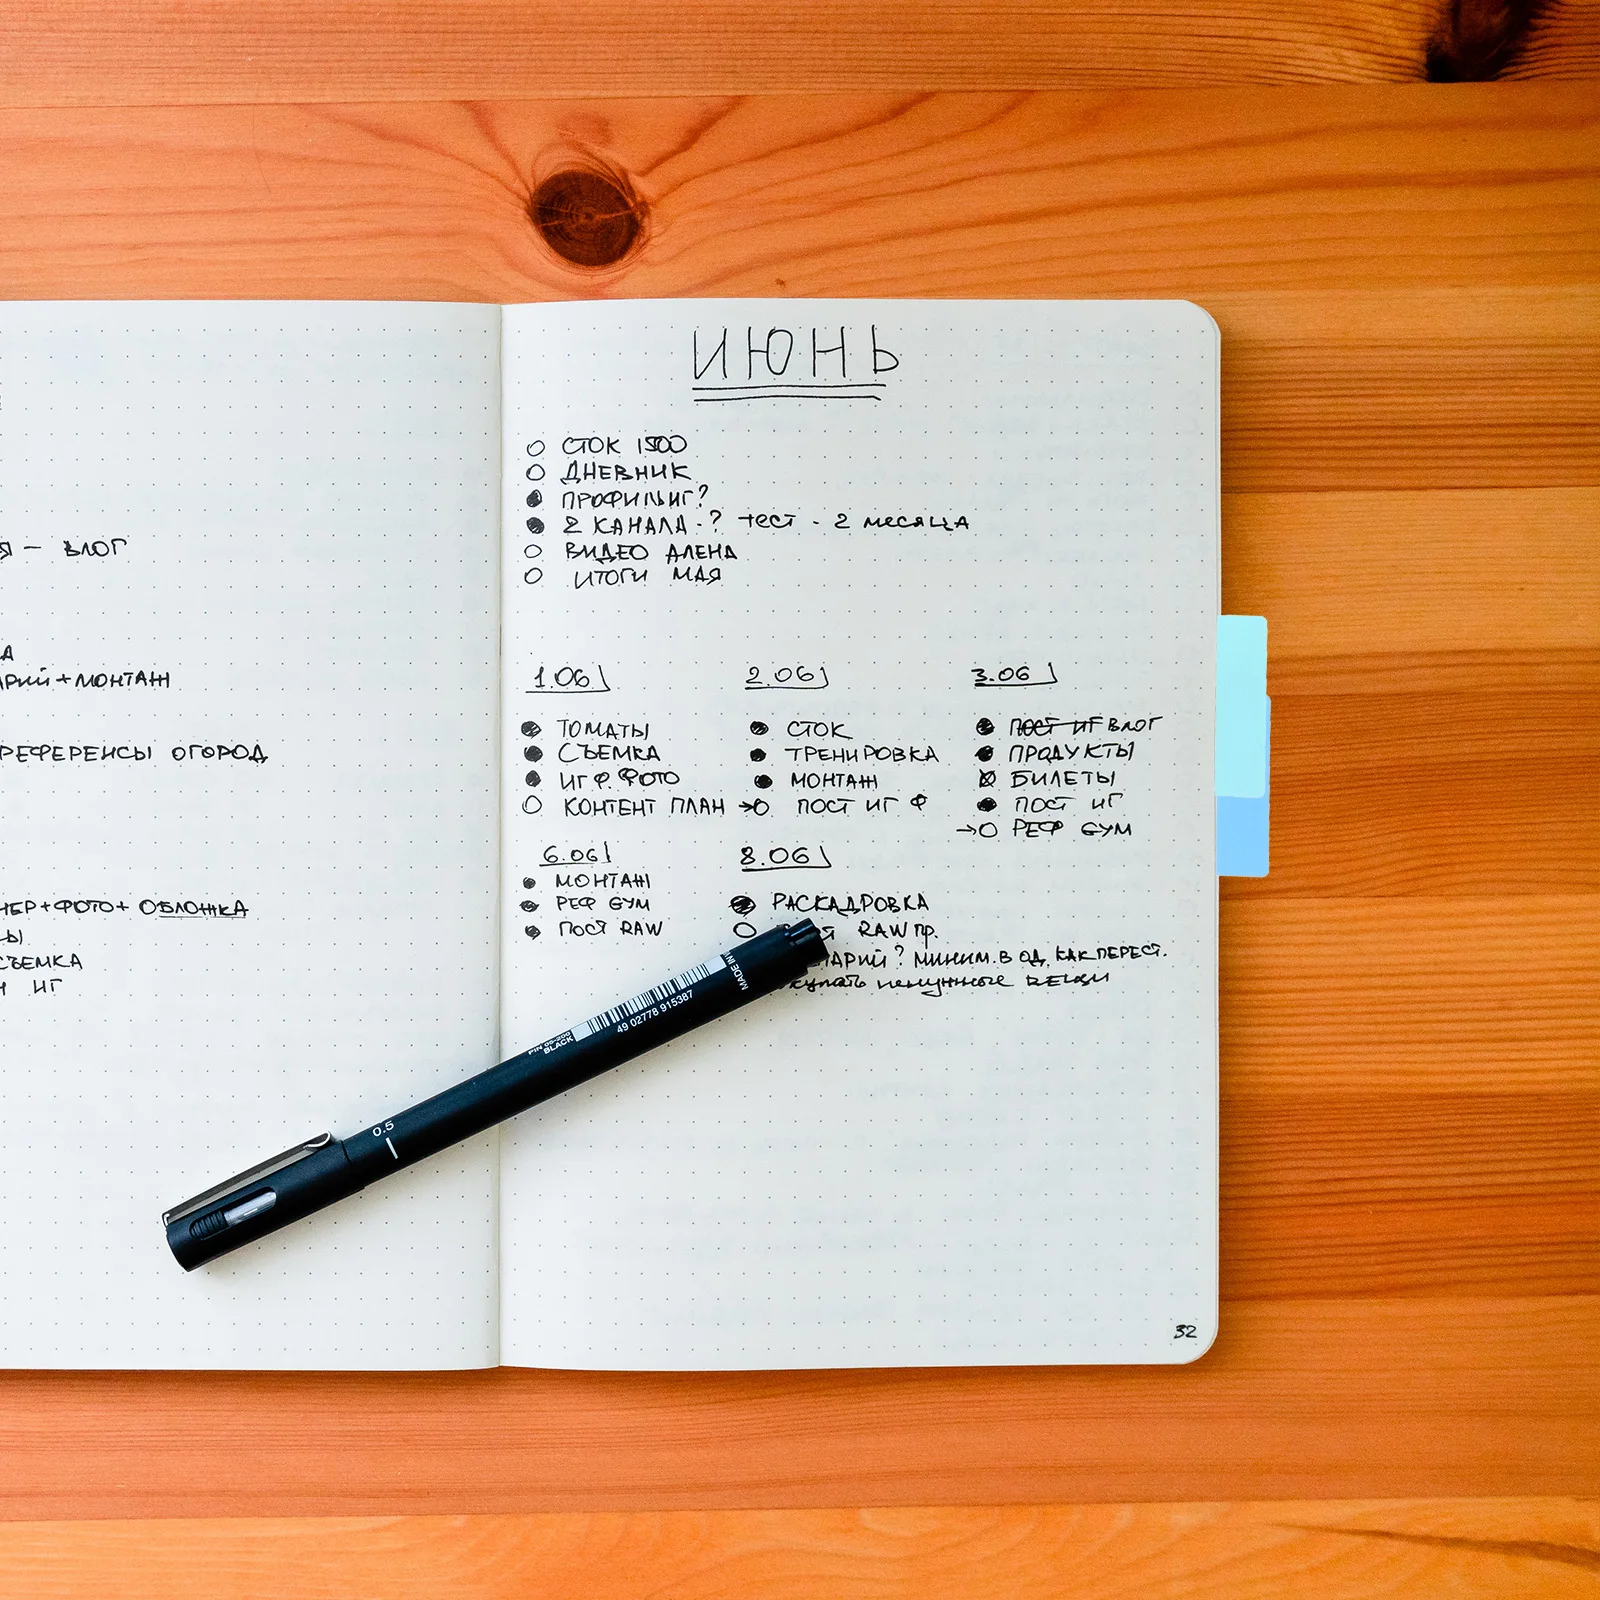 Я – ВЛОГ
А
АРИЙ + МОНТАЖ
РЕФЕРЕНСЫ ОГОРОД
НЕР + ФОТО + ОБЛОЖКА
СЫ
СЪЕМКА
ИГ
ИЮНЬ
СТОК 1500
ДНЕВНИК
ПРОФИЛЬ ИГ?
2 КАНАЛА - ? ТЕСТ - 2 МЕСЯЦА
ВИДЕО АЛЕНА
ИТОГИ МАЯ
1.06
ТОМАТЫ
СЪЕМКА
ИГ Ф. ФОТО
КОНТЕНТ ПЛАН
2.06
СТОК
ТРЕНИРОВКА
МОНТАЖ
→ ПОСТ ИГ Ф
3.06
ПОСТ ИГ ВЛОГ
ПРОДУКТЫ
БИЛЕТЫ
ПОСТ ИГ
→ РЕФ GYM
6.06
МОНТАЖ
РЕФ GYM
ПОСТ RAW
8.06
РАСКАДРОВКА
RAW ПР.
НАРИЙ? МИНИМ. В ОД. КАК ПЕРЕСТ.
КУПАТЬ НЕНУЖНЫЕ ВЕЩИ
MADE IN
49 02778 915387
PIN 05-200
BLACK
0.5
32